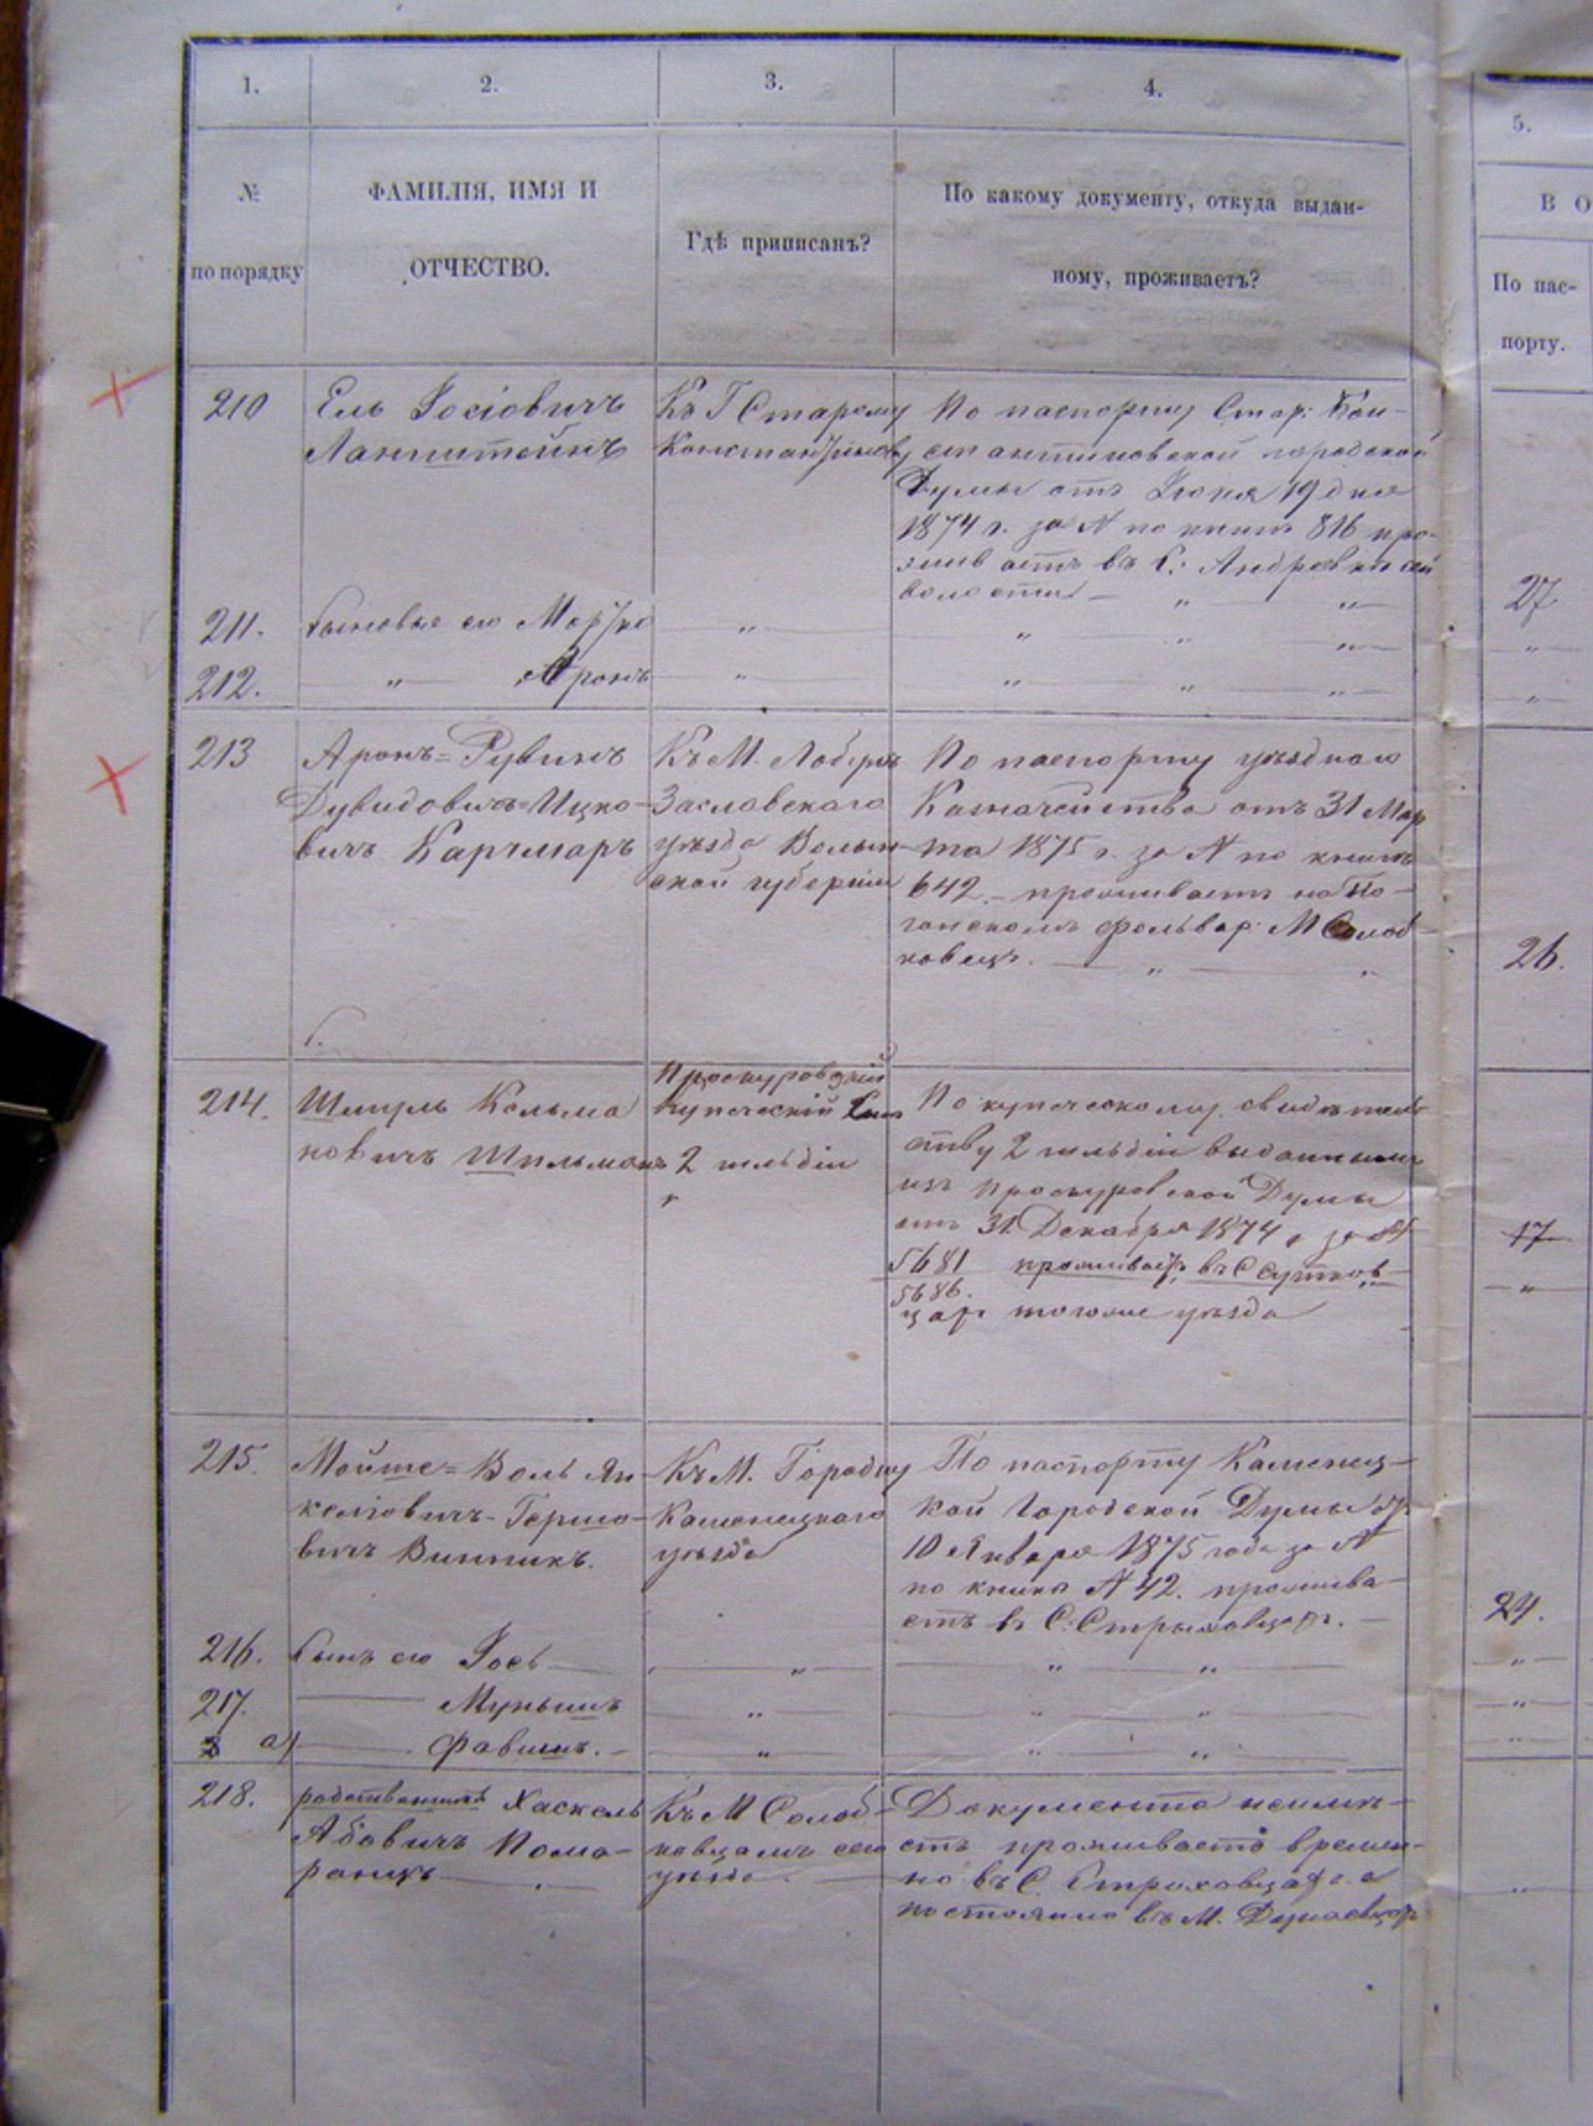 1. 2. 3. 4. 5.
№ по порядку
ФАМИЛІЯ, ИМЯ И
ОТЧЕСТВО.
Гдѣ приписанъ?
По какому документу, откуда выдан-
ному, проживаетъ?
В О
По пас-
порту.
210
Ель Іосіовичъ
Ланштейнъ
Къ Г Старому
Константинову
По паспорту Стар: Кон-
стантиновской городской
Думы отъ Іюня 19 дня
1874 г. за N по книгѣ 816 про-
живаетъ въ С:
волости
27
211. Сыновья его Моршко
212. " Аронъ
213
Аронъ=Рувинъ
Дувидовичъ=Ицко-
вичъ Карчмаръ
Къ М. Лабунь
Заславскаго
уѣзда Волын-
ской губерніи
По паспорту уѣзднаго
Казначейства отъ 31 Мар
та 1875 г. за N по книгѣ
642.- проживаетъ на
фольвар: М Солоб-
ковецъ.
26.
214.
Шмуль Кельма
новичъ Шпильманъ
Проскуровскій
купеческій сынъ
2 гильдіи
По купеческому свидѣтель
ству 2 гильдіи выданному
изъ Проскуровской Думы
отъ 31 Декабря 1874 г за №
5681 проживаетъ въ С Сутков-
5686.
цахъ тогоже уѣзда
17
215.
Мойше=Воль Ян-
келіовичъ-Гершо-
вичъ Винникъ.
Къ М. Городку
Каменецкаго
уѣзда
По паспорту Каменец-
кой Городской Думы отъ
10 Января 1875 года за N
по книгѣ N 42. прожива-
етъ въ С: Стрыховцахъ.
24.
216. Сынъ его Іось
217. Мунышъ
а) Фавишъ.
218.
родственникъ Хаскель
Абовичъ Пома-
ранцъ
Къ М Солоб-
ковцамъ сего
уѣзда.
Документа неимѣ-
етъ проживаетъ времен-
но въ С. Стриховцахъ а
постоянно въ М. Дунаевцахъ